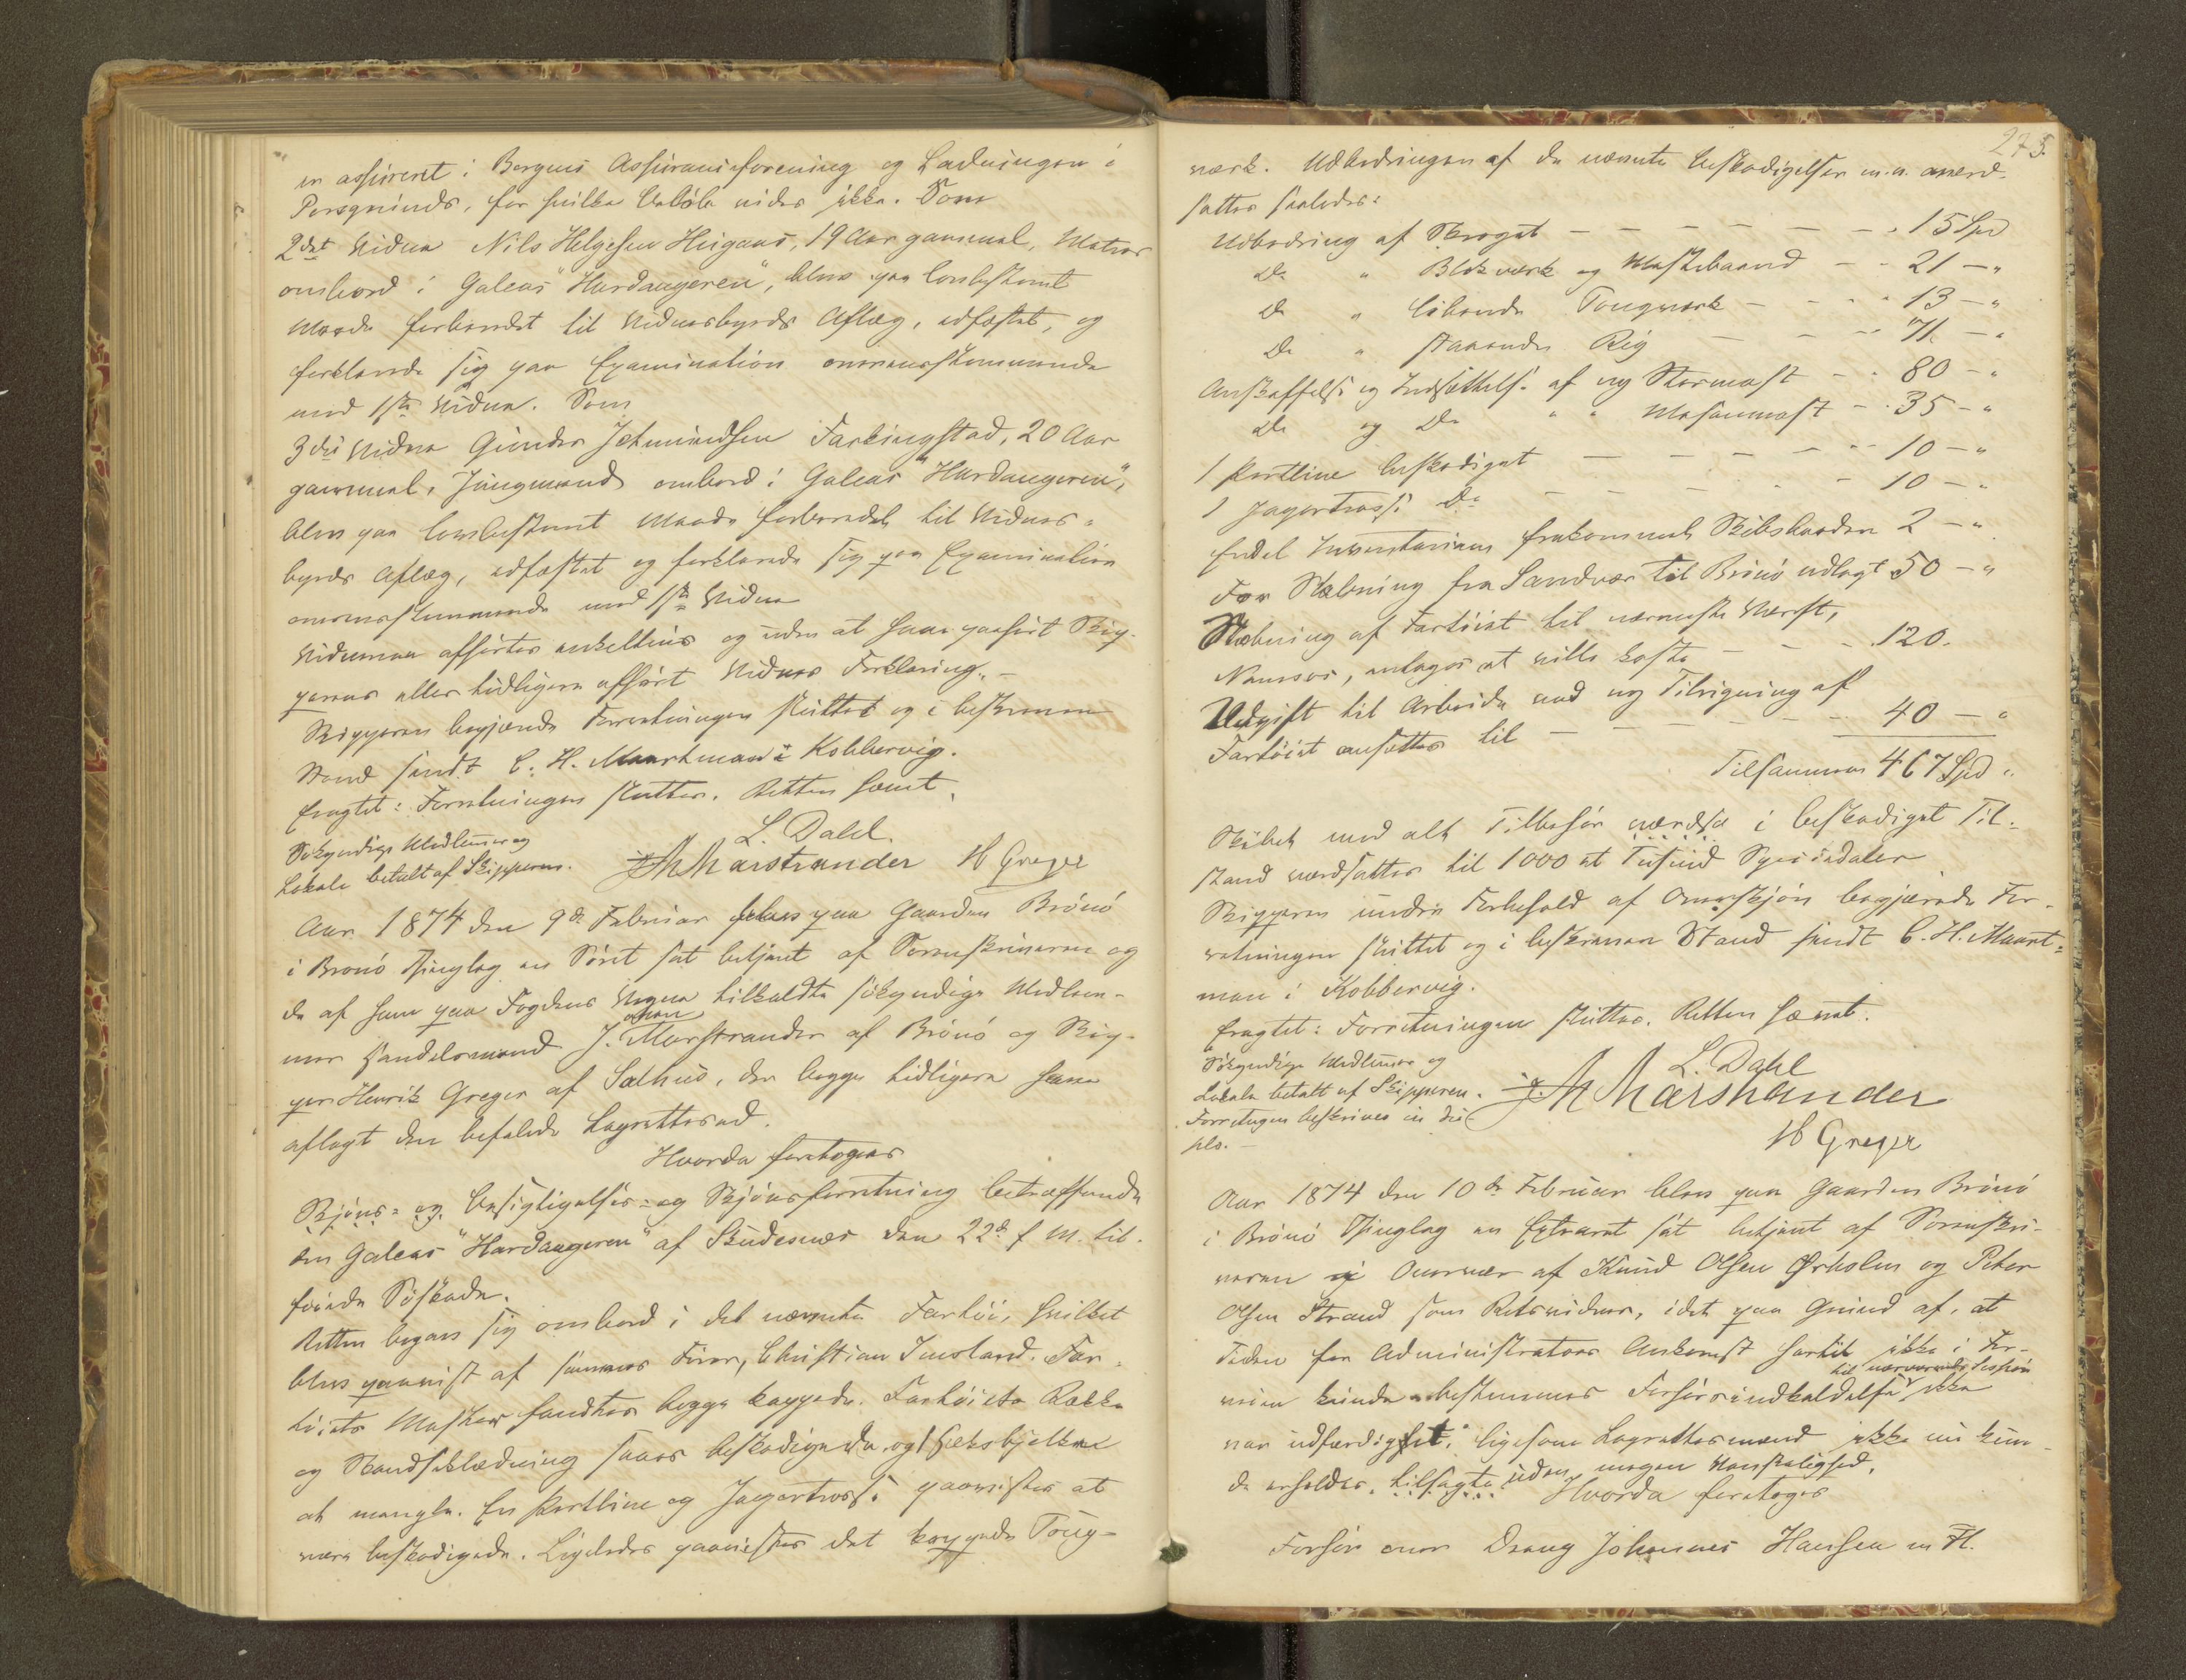 er assureret i Bergens Assuranceforening og Ladningen i
Porsgrunds, for hvilke Beløb vides ikke. Som
2det Vidne Nils Helgesen Heigaas, 19 Aar gammel, Matros
ombord i Galeas "Hardangeren", blev paa lovbestemt
Maade forberedt til Vidnesbyrds Aflæg, edfæstet, og
forklarede sig paa Examination overensstemmende
med 1ste Vidne. Som
3die Vidne Gunder Jetmundsen Farkingstad, 20 Aar
gammel, Jungmand ombord i Galeas "Hardangeren",
blev paa lovbestemt Maade forberedet til Vidnes-
byrds Aflæg, edfæstet og forklarede sig paa Examination
overensstemmende med 1ste Vidne
Vidnerne afhørtes enkeltvis og uden at have paahørt Skip-
perens eller tidligere afhørt Vidnes Forklaring. –
Skipperen begjærede Forretningen sluttet og i beskreven
Stand sendt C. H. Maartmann i Kobbervig.
Eragtet: Forretningen sluttes. Retten hævet.
Søkyndige Medlemmer og
Lokale betalt af Skipperen.
L. Dahl.
JAMarstrander H Greger
Aar 1874 den 9de Februar blev paa Gaarden Brönö
i Brönö Thinglag en Söret sat betjent af Sorenskriveren og
de af ham paa Fogdens Vegne tilkaldte søkyndige Medlem-
mer Handelsmand J. Marstrander af Brönö og Skip-
per Henrik Greger af Salhus, der begge tidligere have
aflagt den befalede Lagrettesed.
Hvorda foretoges
Skjöns- og Besigtigelses- og Skjönsforretning betræffende
den Galeas "Hardangeren" af Skudesnæs den 22de f. M. til-
föiede Söskade.
Retten begav sig ombord i det nævnte Fartöi, hvilket
blev paavist af sammes Förer, Christian Imsland. Far-
töiets Master fandtes begge kappede. Fartöiets Række
og Skandseklædning saaes beskadigede og 1 Hæksbjelke
at mangle. En Portline og Jagertrosse paavistes at
være beskadigede. Ligeledes paavistes det kappede Toug-
273.
værk. Udbedringen af de nævnte Beskadigelser m. v. værd-
sattes saaledes:
Udbedring af Skroget – – – – – – – 15 Spd
Do " Blokværk og Mastebaand – – 21 – "
Do " löbende Tougværk – – – – 13 – "
Do " staaende Rig – – – – 71 – "
Anskaffelse og Indsættelse af ny Stormast – – 80 – "
Do og Do " " Mesanmast – – 35 – "
1 Portline beskadiget – – – – – – 10 – "
1 Jagertrosse Do – – – – – – 10 – "
Endel Inventarium frakommet Skibsbaaden 2 – "
For Slæbning fra Sandvær til Brönö udlagt 50 – "
Slæbning af Fartöiet til nærmeste Værft,
Namsos, antages at ville koste – – – 120.
Udgift til Arbeide ved ny Tilrigning af
Fartöiet ansættes til – – – – – – 40 – "
Tilsammen 467 Spd "
Skibet med alt Tilbehör værdsa i beskadiget Til-
stand værdsattes til 1000 et Tusind Speciedaler
Skipperen under Forbehold af Overskjön begjærede For-
retningen sluttet og i beskreven Stand sendt C. H. Maart-
man i Kobbervig.
Eragtet: Forretningen sluttes. Retten hævet.
Søkyndige Medlemmer og
Lokale betalt af Skipperen.
Forretngen beskrives in du
plo. –
L. Dahl
JAMarstrander
H Greger
Aar 1874 den 10de Februar blev paa Gaarden Brönö
i Brönö Thinglag en Extraret sat betjent af Sorenskri-
veren i Overvær af Knud Olsen Ørholm og Peter
Olsen Strand som Retsvidner, idet paa Grund af, at
Tiden for Administrators Ankomst hertil ikke i For-
veien kunde bestemmes Forhörsindkaldelse til nærværende Session ikke
var udfærdiget, ligesom Lagrettesmænd ikke nu kun-
de erholdes tilsagte uden megen Vanskelighed.
Hvorda foretoges
Forhör over Dreng Johannes Hansen m. Fl.